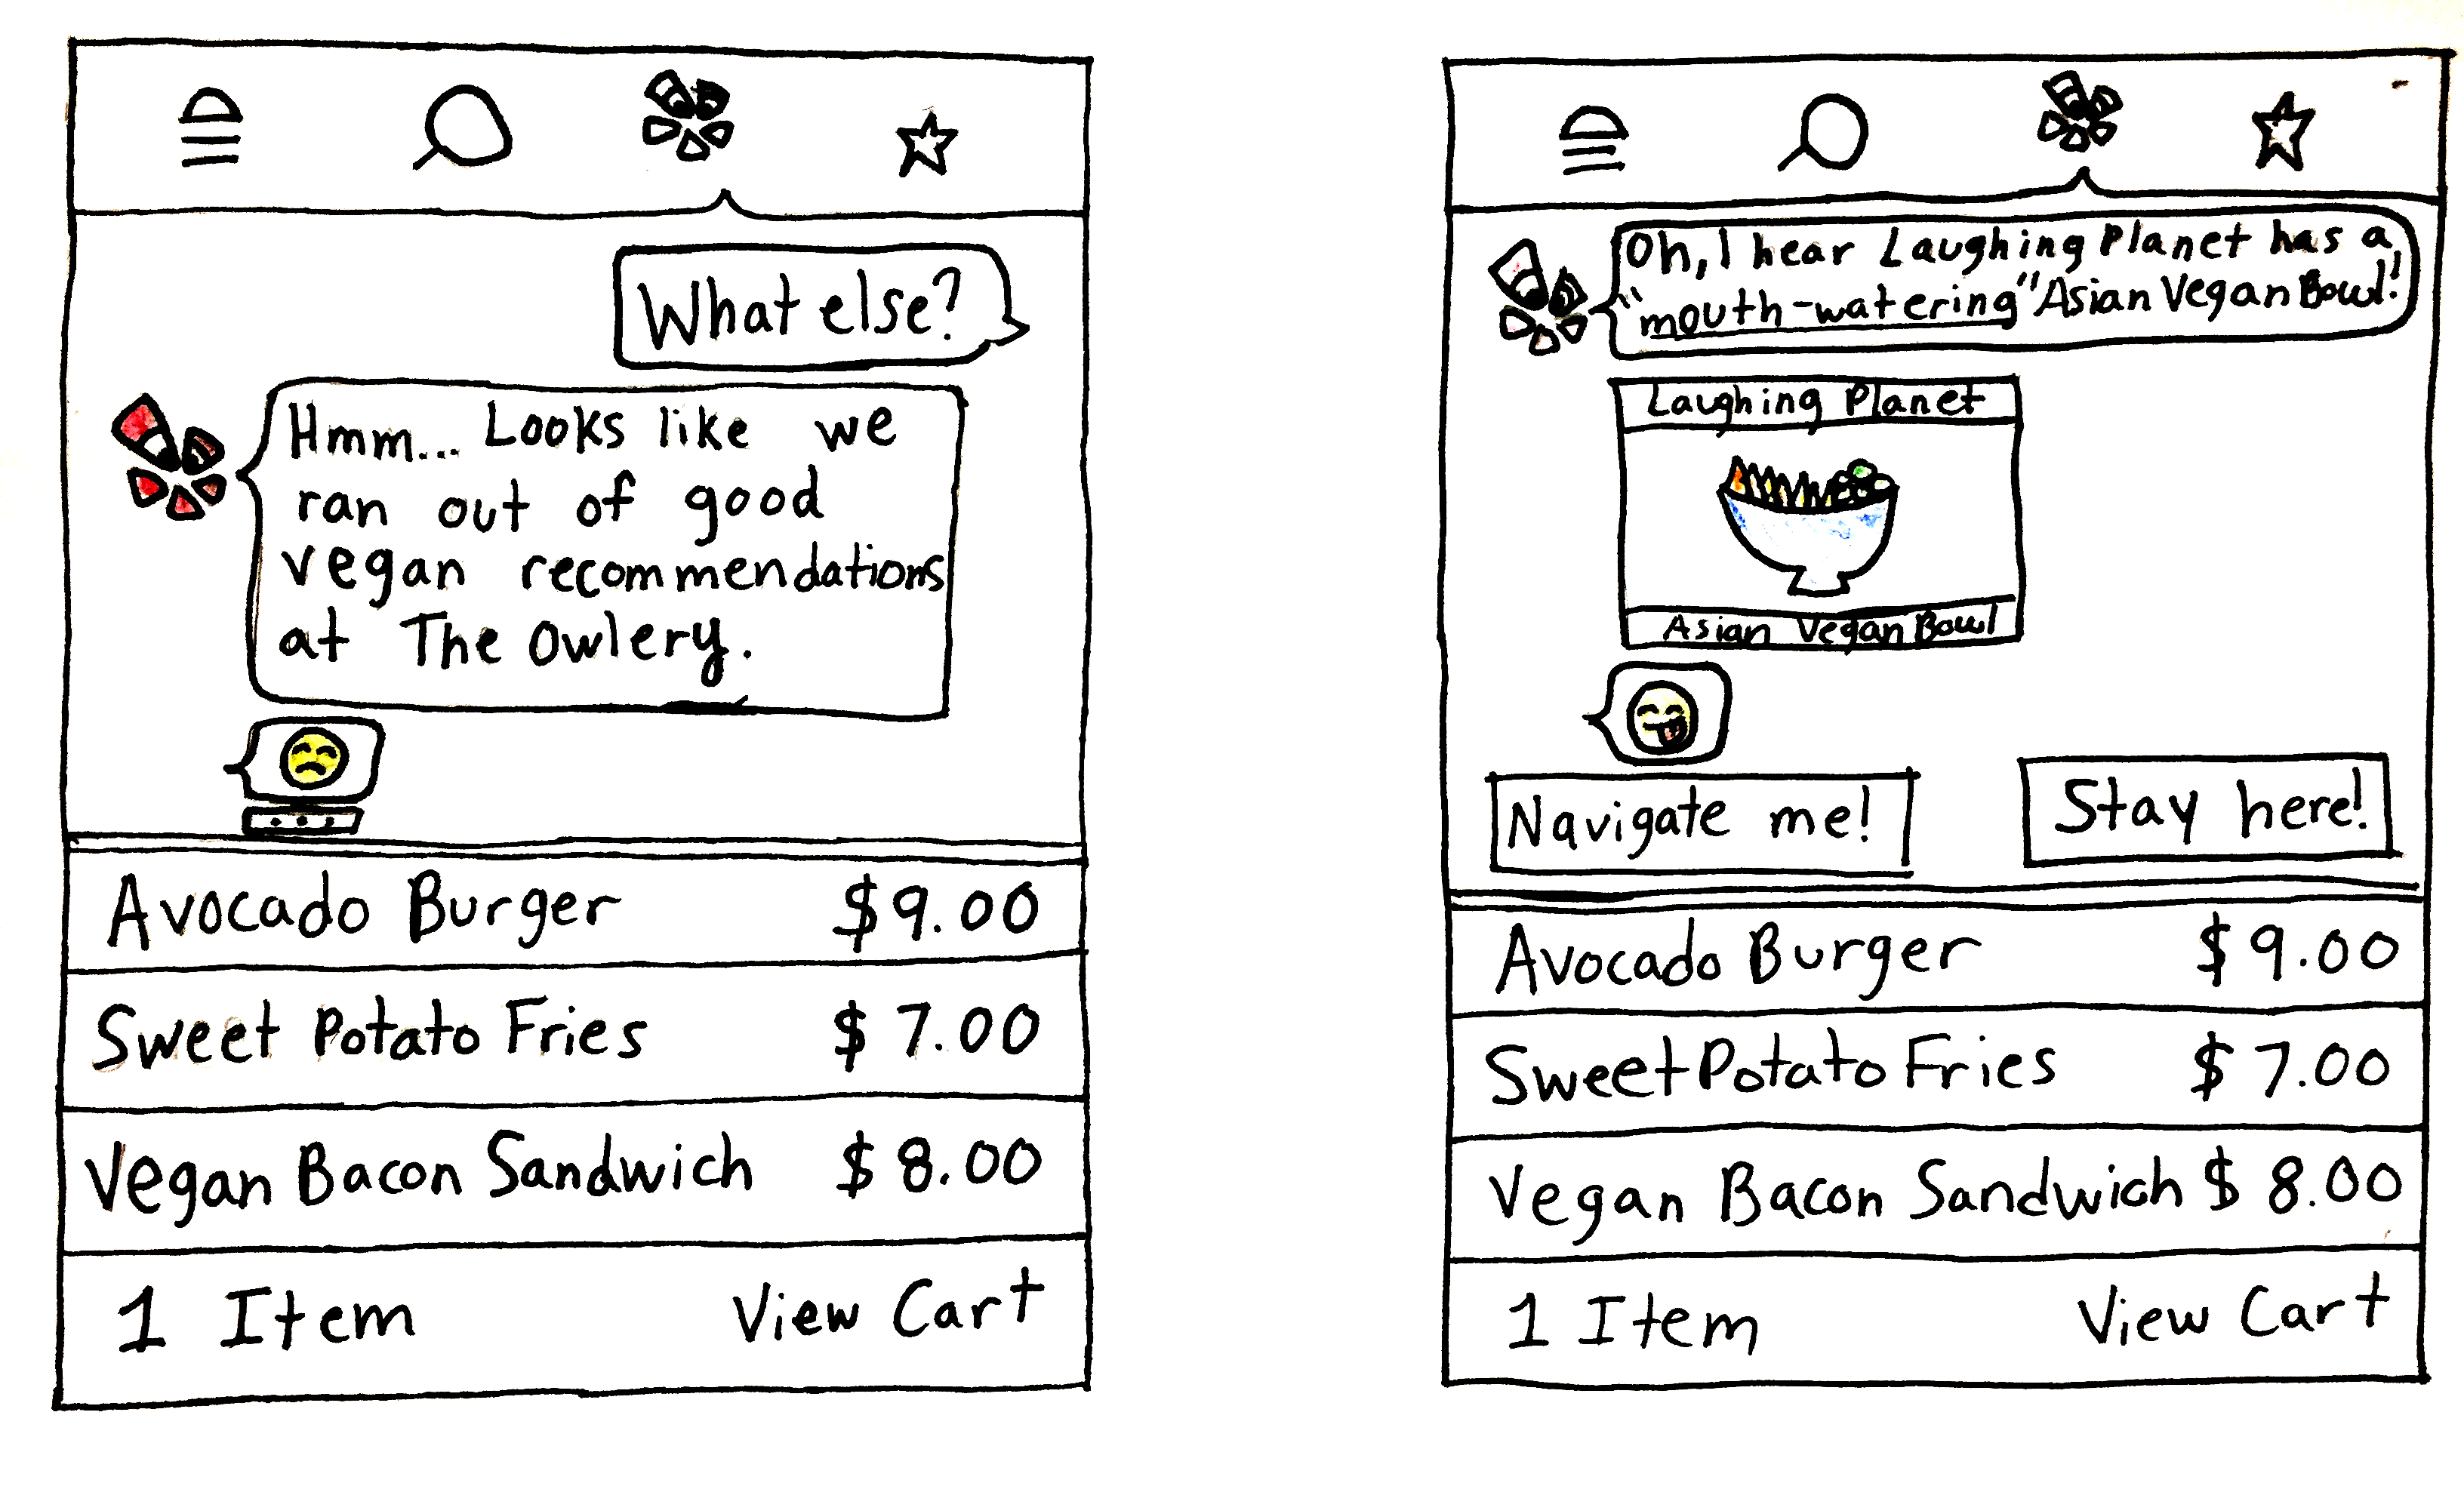 What else?
Hmm... Looks like we
ran out of good
vegan recommendations
at The Owlery.
Avocado Burger $9.00
Sweet Potato Fries $7.00
Vegan Bacon Sandwich $8.00
1 Item View Cart
Oh, I hear Laughing Planet has a
"mouth-watering" Asian Vegan Bowl!
Laughing Planet
Asian Vegan Bowl
Navigate me! Stay here!
Avocado Burger $9.00
Sweet Potato Fries $7.00
Vegan Bacon Sandwich $8.00
1 Item View Cart